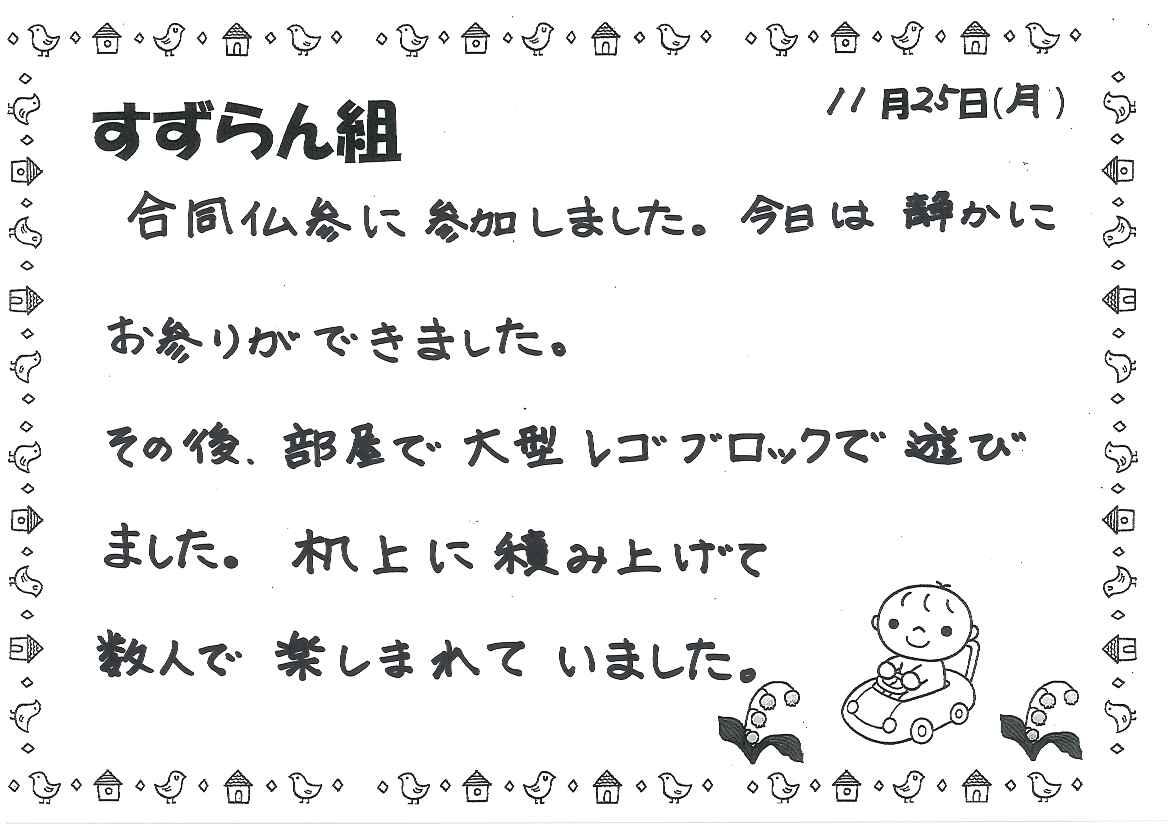 11月25日(月)
すずらん組
合同仏参に参加しました。今日は静かに
お参りができました。
その後、部屋で大型レゴブロックで遊び
ました。机上に積み上げて
数人で楽しまれていました。